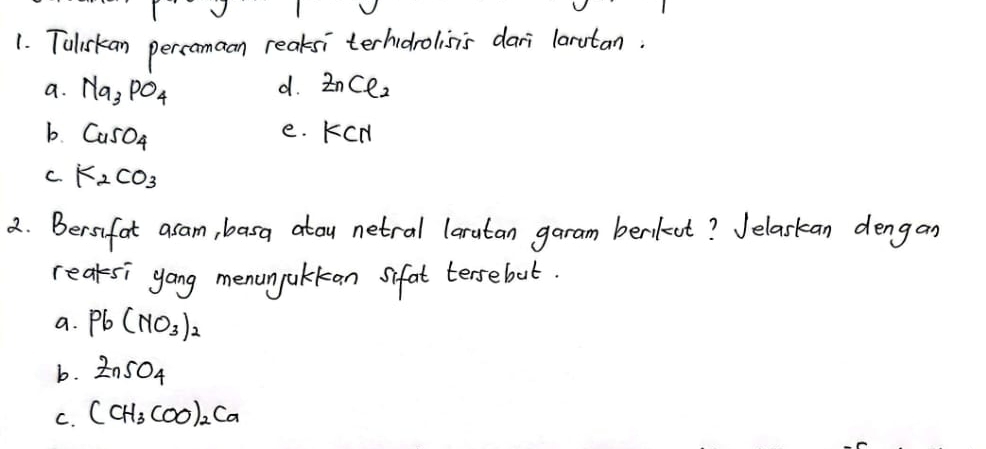 1. Tuliskan persamaan reaksi terhidrolisis dari larutan :
a. Na₃PO₄ d. ZnCl₂
b. CuSO₄ e. KCN
c. K₂CO₃
2. Bersifat asam, basa atau netral larutan garam berikut? Jelaskan dengan
reaksi yang menunjukkan sifat tersebut.
a. Pb(NO₃)₂
b. ZnSO₄
c. (CH₃COO)₂Ca